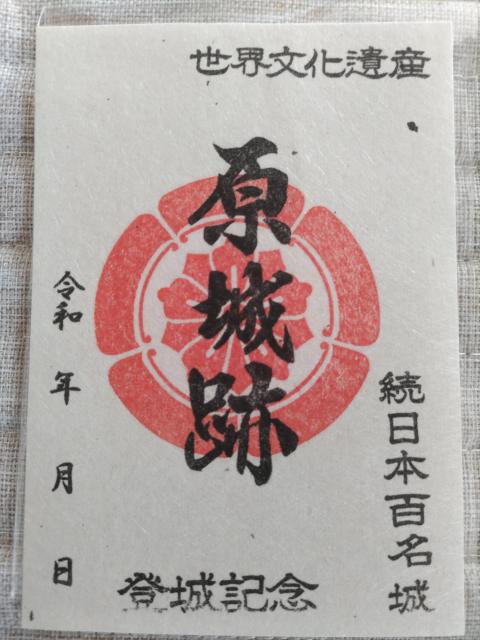 世界文化遺産
原城跡
続日本百名城
令和　年　月　日
登城記念